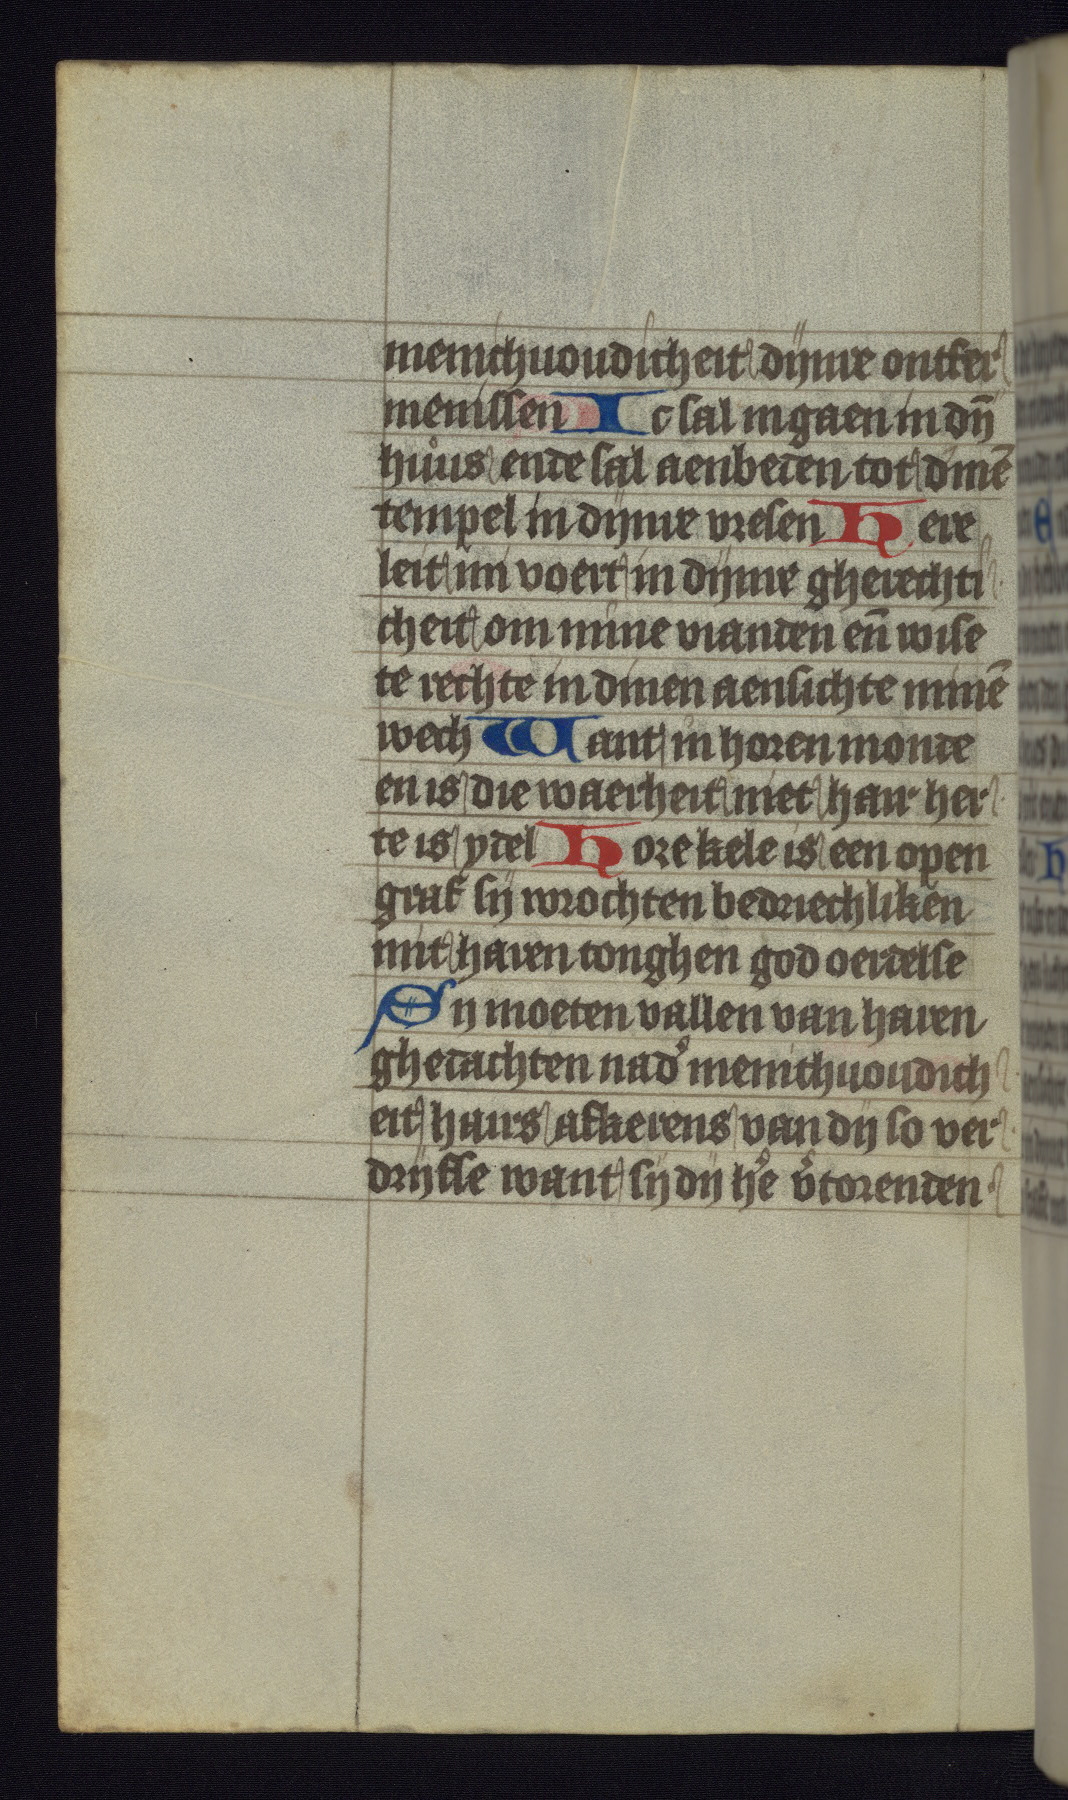 menichuoudicheit dijnre ontfer
menissen Ic sal ingaen in dyn̄
huus ende sal aenbeden tot dinē
tempel in dijnre vresen Here
leit mi voert in dijnre gherechti
cheit om mine vianden en̄ wise
te rechte in dinen aensichte minē
wech Want in horen monde
en is die waerheit niet hair her
te is ydel Hore kele is een open
graf sij wrochten bedriechliken
mit haren tonghen god oerdelse
Sij moeten vallen van haren
ghedachten nad' menichuoudich
eit hairs afkerens van dij so ver
drijfse want sij dij h'e v'torenden